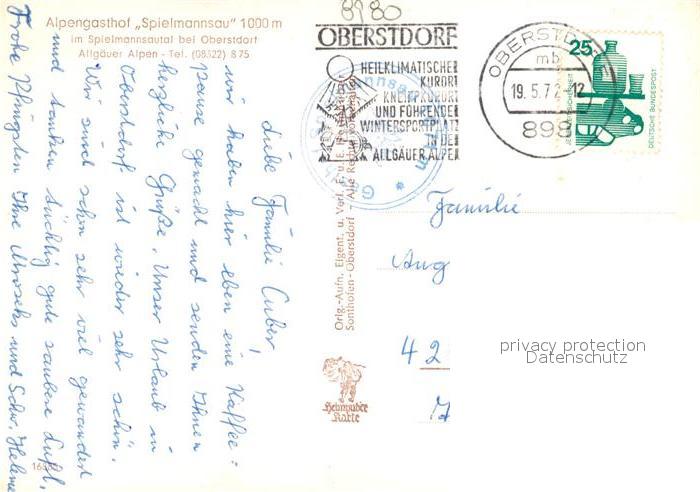 Alpengasthof „Spielmannsau" 1000 m
im Spielmannsautal bei Oberstdorf
Allgäuer Alpen - Tel. (08322) 875
Liebe Familie Cuber!
wir haben hier eben eine Kaffee=
pause gemacht und senden Ihnen
herzliche Grüße. Unser Urlaub in
Oberstdorf ist wieder sehr schön.
Wir sind schon sehr viel gewandert
und tanken tüchtig gute saubere Luft.
Frohe Pfingsten Ihre und Schw. Helene
Orig.-Aufn. Eigent. u. Verl.
Sonthofen-Oberstdorf
Heimhuber
Karte
8980
OBERSTDORF
HEILKLIMATISCHER
KURORT
KNEIPPKURORT
UND FÜHRENDER
WINTERSPORTPLATZ
IN DEN
ALLGÄUER ALPEN
OBERSTDORF
mb
19.5.72-12
898
25
DEUTSCHE BUNDESPOST
Familie
Aug
42
privacy protection
Datenschutz